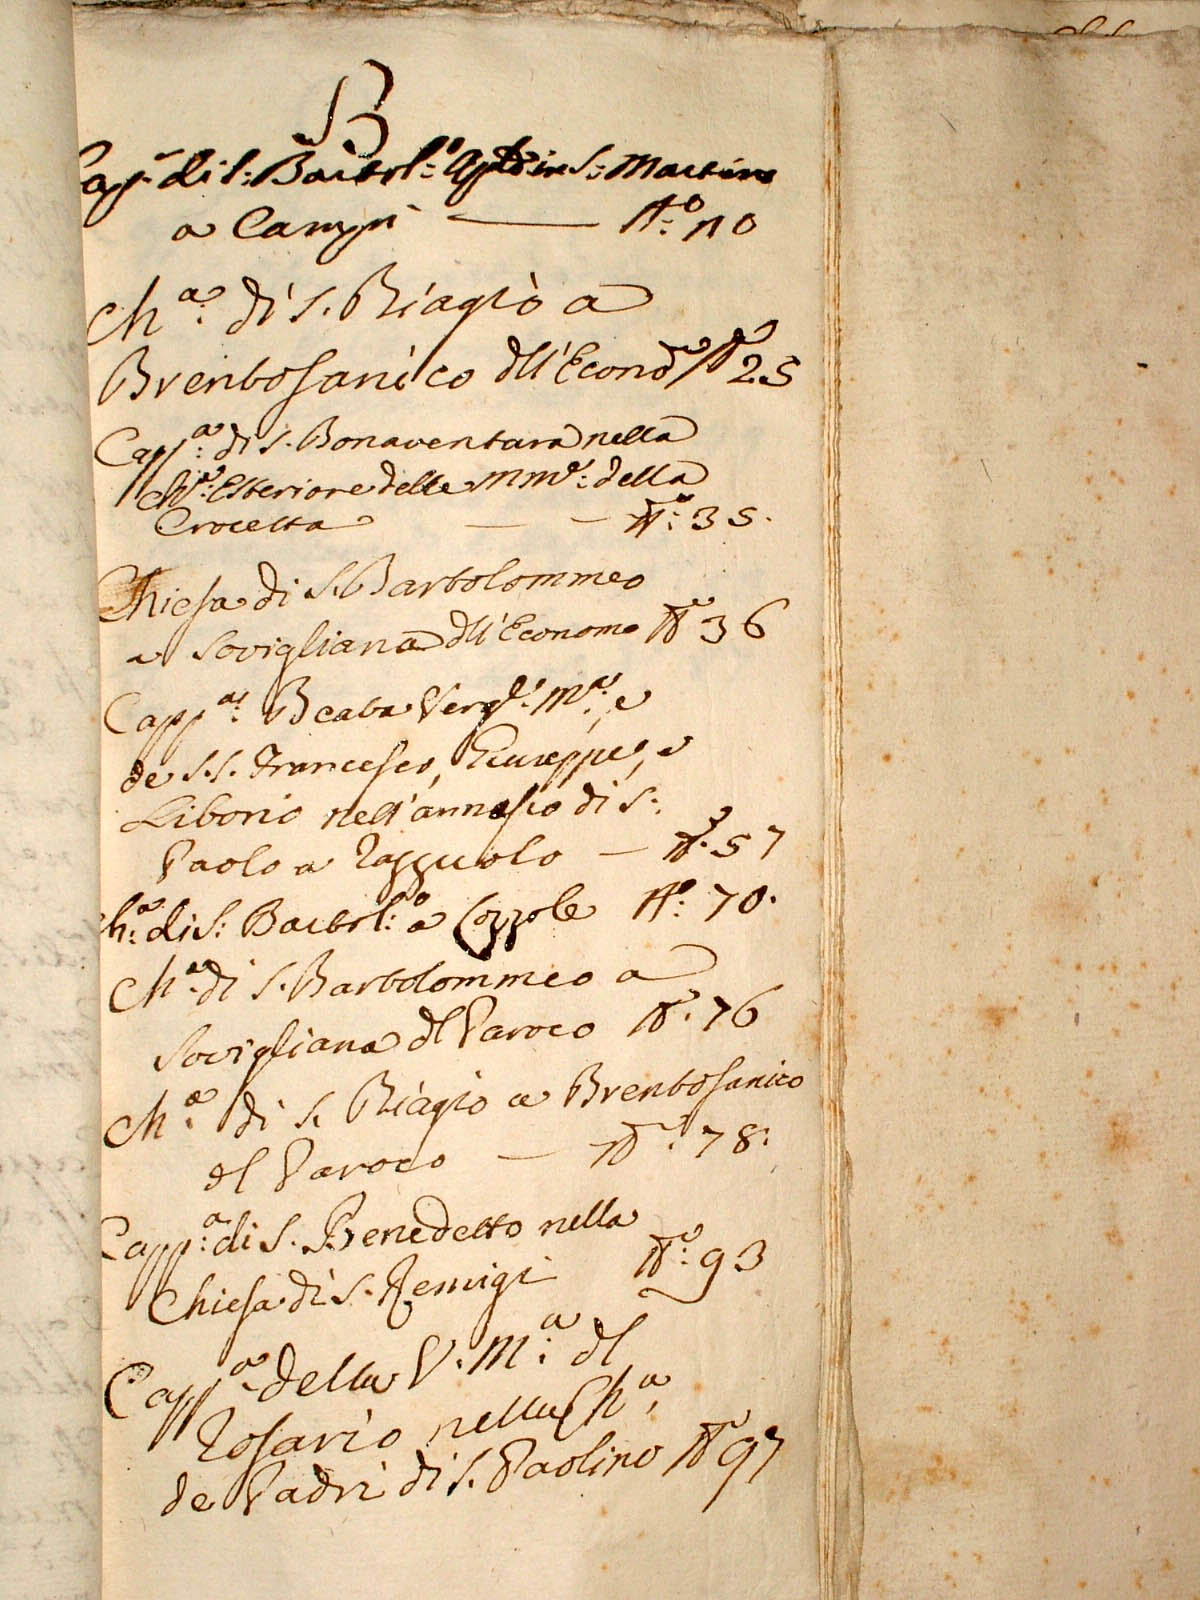 B
Capp.a di S: Bartol:o Aplo in S: Martino
a Campi — N:o 110
Ch.a di S. Biagio a
Brentosanico dll'Econo N.o 25
Capp.a di S. Bonaventura nella
Ch.a Esteriore delle MM.e della
Crocetta — — N.o: 35.
Chiesa di S. Bartolommeo
a Sovigliana dll'Economo N.o 36
Capp.a Beata Verg.e M.a, e
de S.S. Francesco, Giuseppe, e
Liborio nell' di S:
Paolo a Razzuolo — N.o 57
Ch:a di S: Bartol:o a Cozzole N:o 70.
Ch.a di S. Bartolommeo a
Sovigliana dl Paroco N.o 76
Ch.a di S. Biagio a Brentosanico
dl Paroco — N.o: 78:
Capp:a di S. Benedetto nella
Chiesa di S. Remigi N.o: 93
Capp.a della V. M:a dl
Rosario nella Ch.a
de Padri di S. Paolino N.o 97